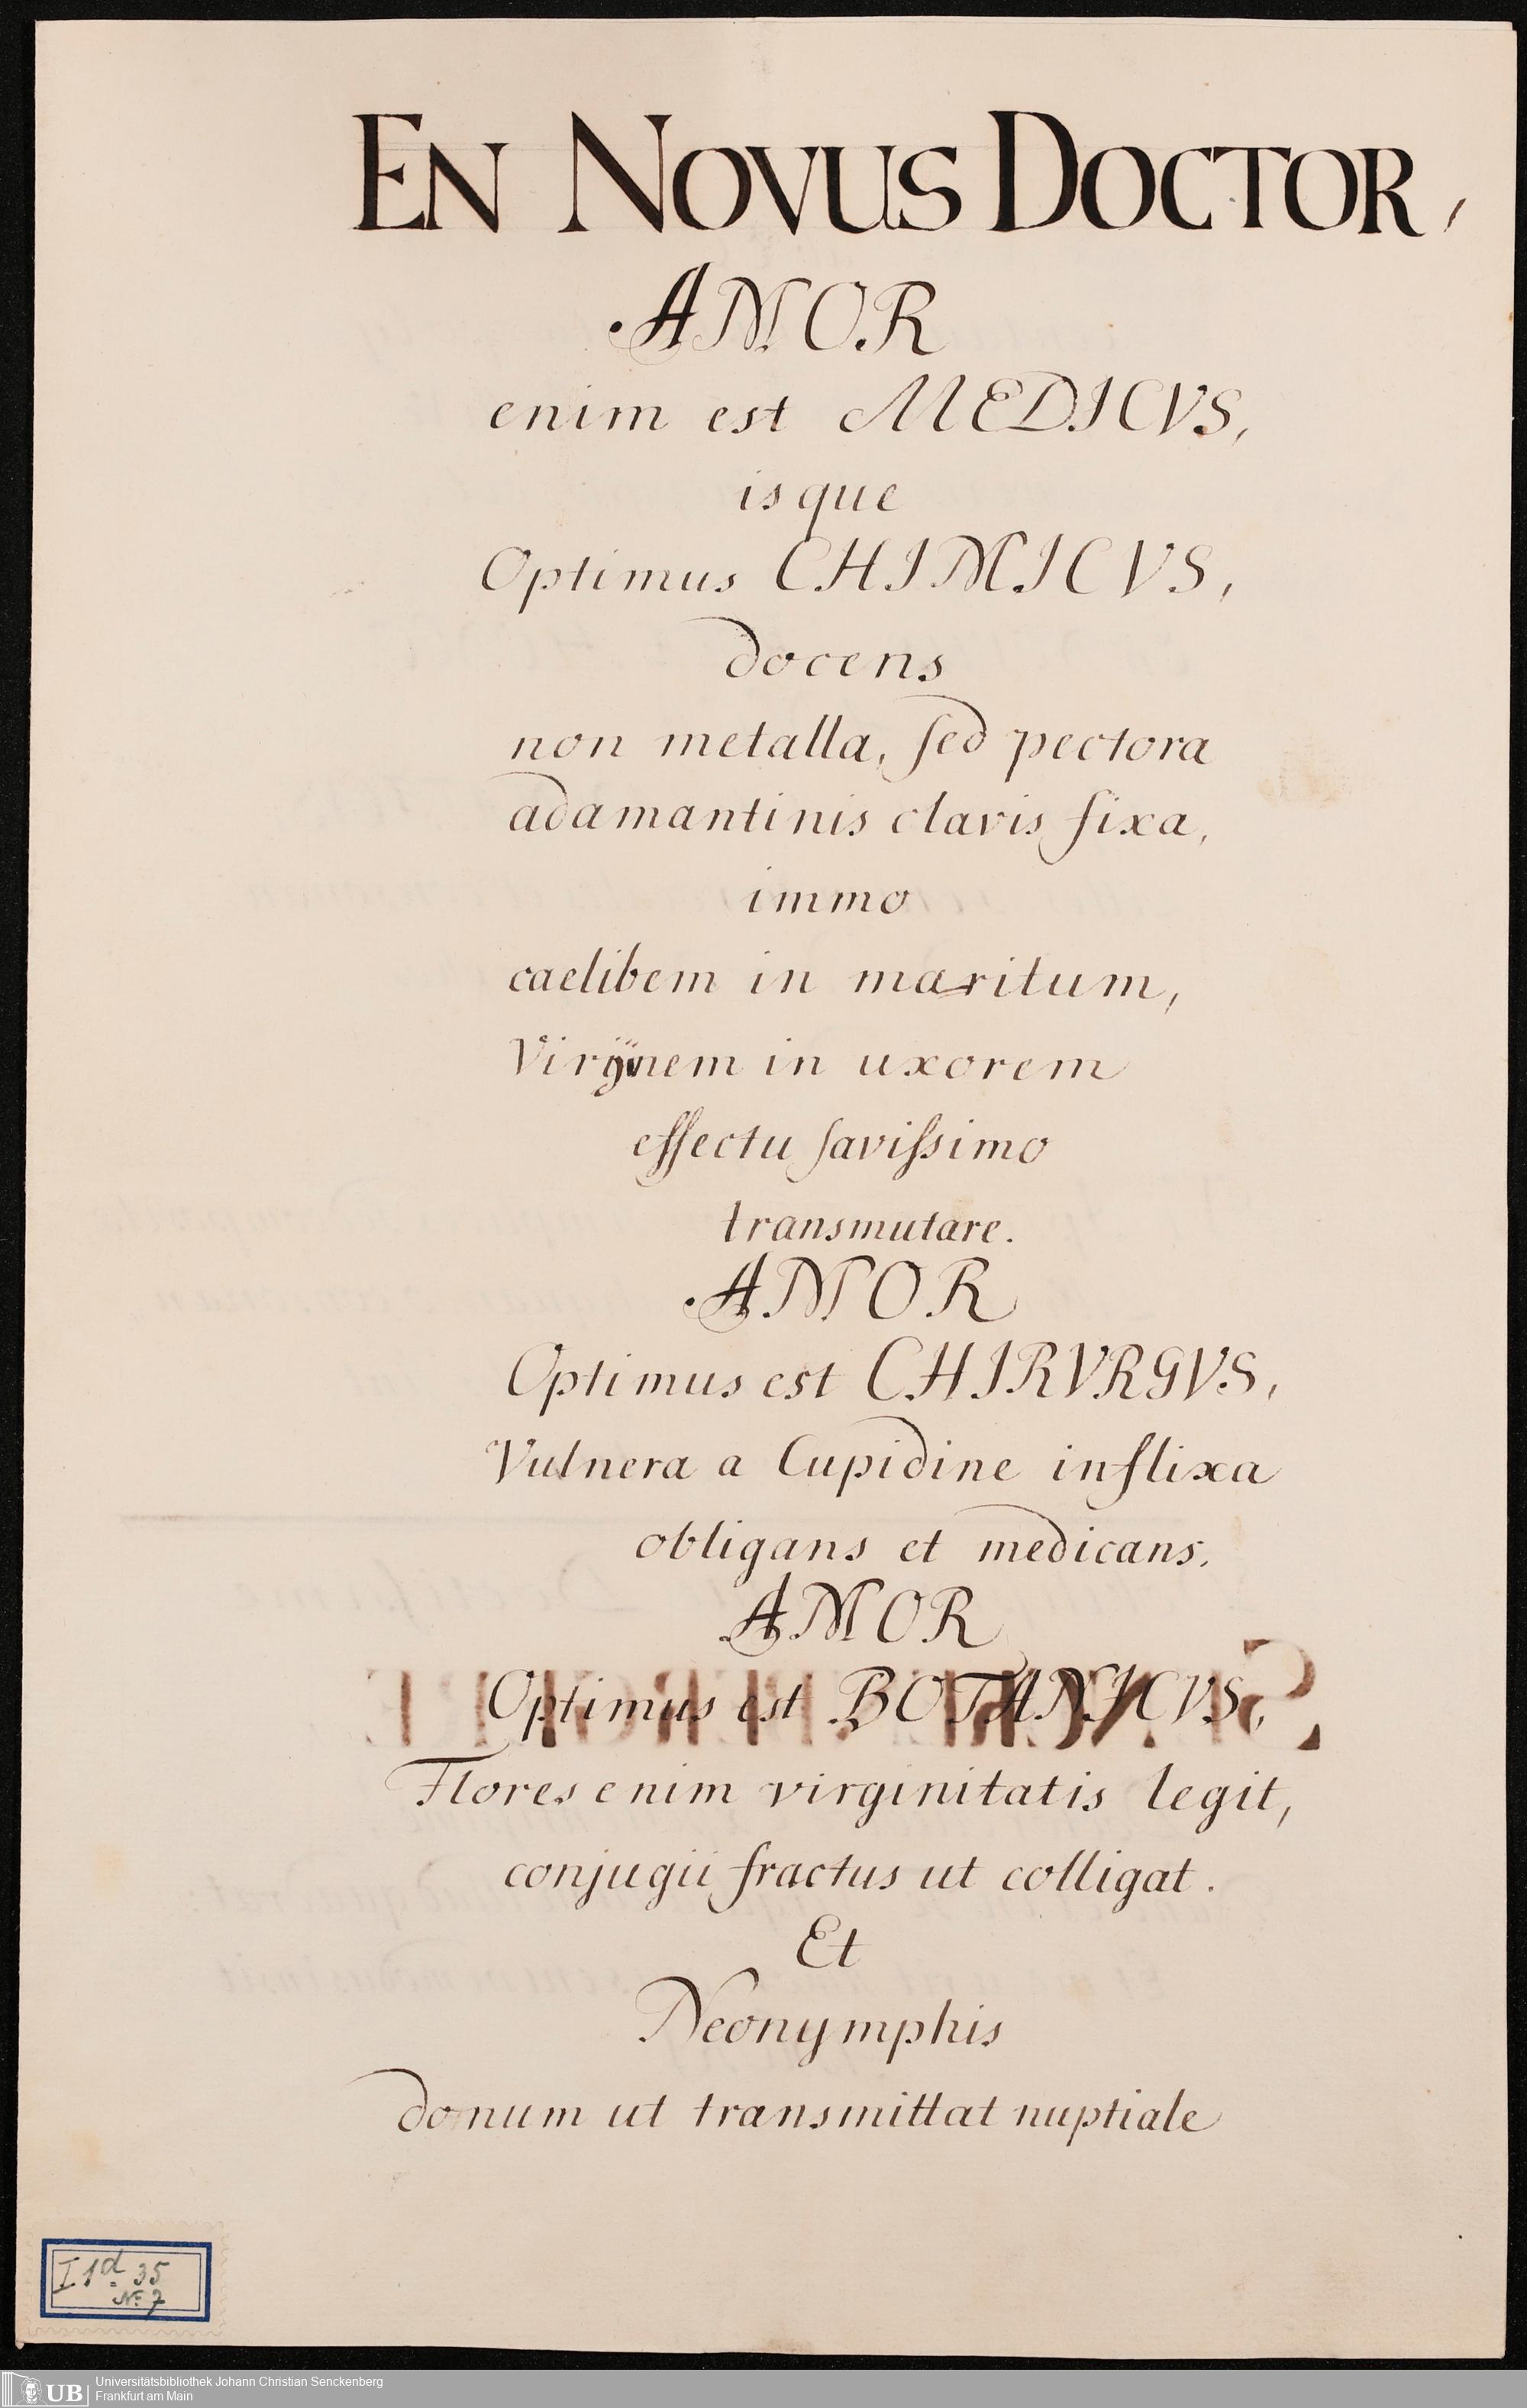 EN NOVUS DOCTOR,
AMOR
enim est MEDICVS,
isque
Optimus CHIMICVS,
docens
non metalla, ſed pectora
adamantinis clavis fixa,
immo
caelibem in maritum,
in uxorem
effectu ſaviſsimo
transmutare.
AMOR
Optimus est CHIRVRGVS,
Vulnera a Cupidine inflixa
obligans et medicans.
AMOR
Optimus est BOTANICVS,
Flores enim virginitatis legit,
conjugii fractus ut colligat.
Et
Neonymphis
donum ut transmittat nuptiale
I 1d 35
No. 7
UB Universitätsbibliothek Johann Christian Senckenberg
Frankfurt am Main